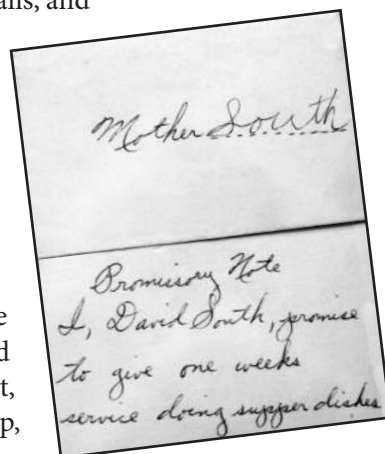 and
Mother South
Promisory Note
I, David South, promise
to give one weeks
service doing supper dishes